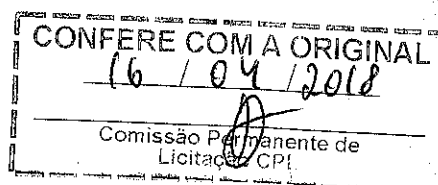 CONFERE COM A ORIGINAL
16 / 04 / 2018
Comissão Permanente de
Licitação CPL